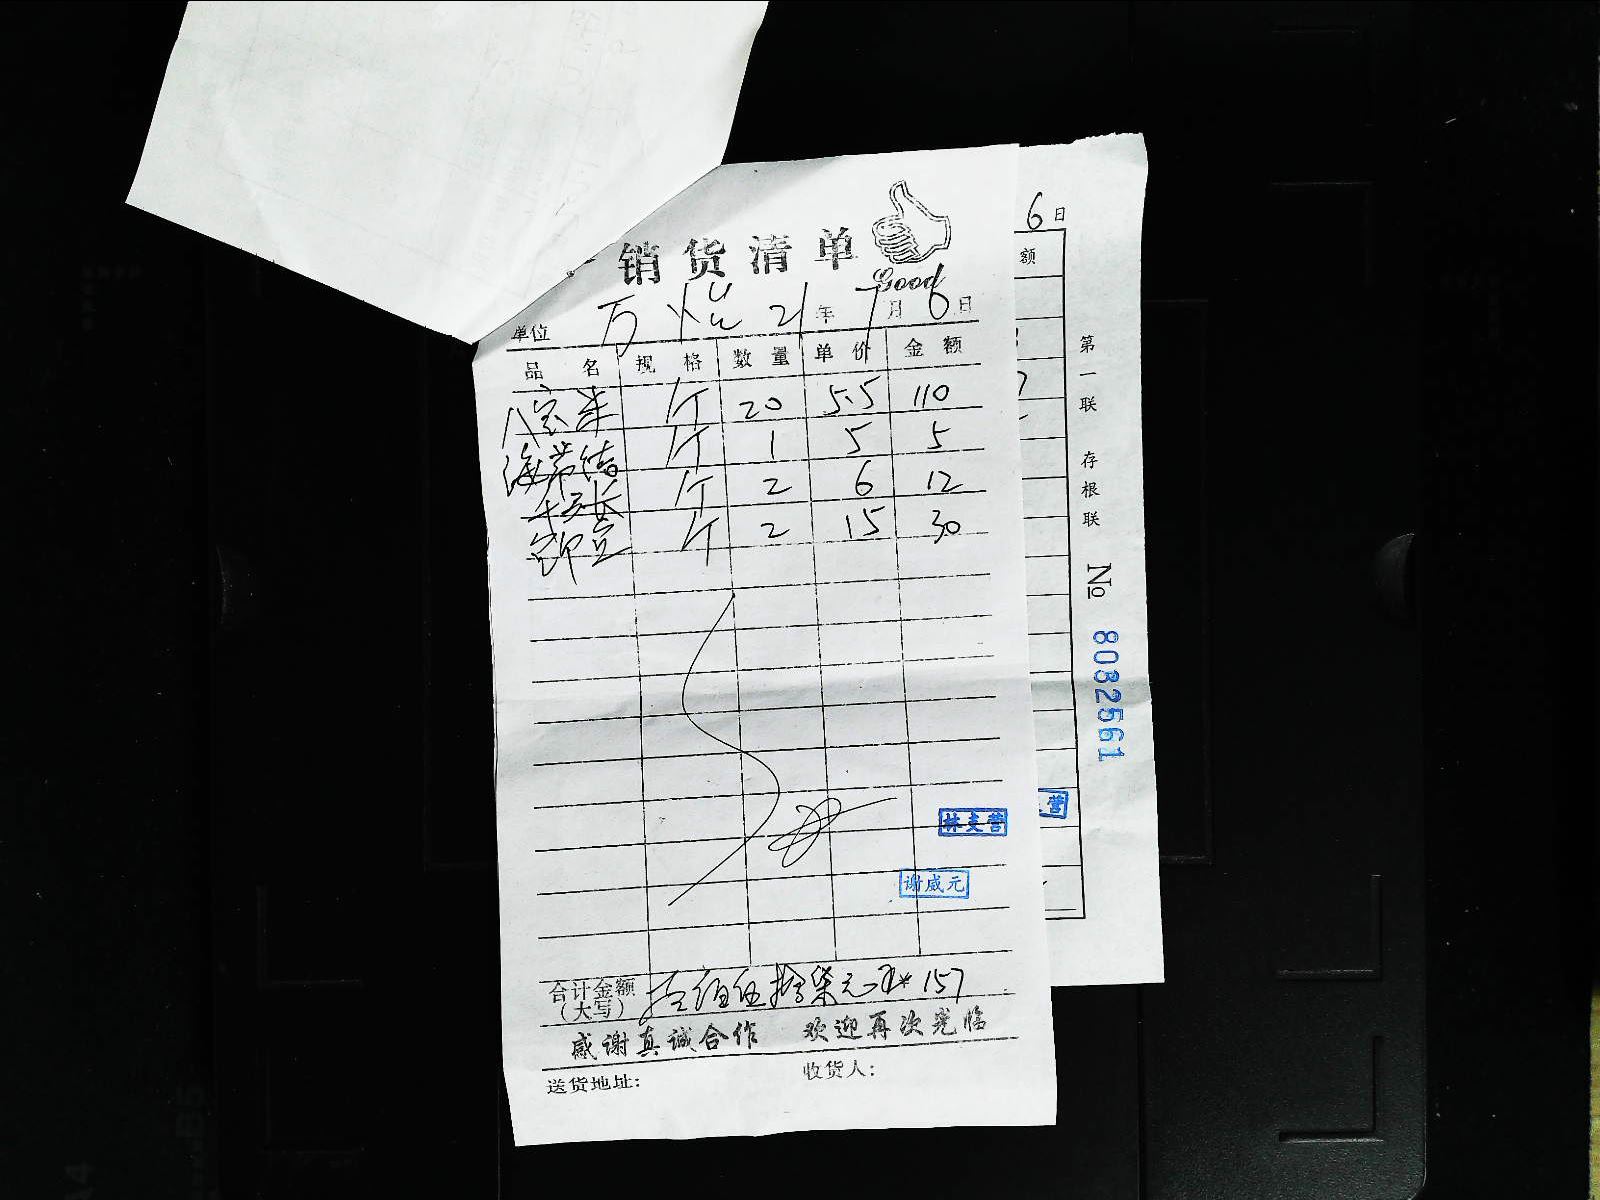 销货清单
Good
单位 万 21年7月6日
品名 规格 数量 单价 金额
八宝米 斤 20 5.5 110
海带结 斤 1 5 5
斤 2 6 12
斤 2 15 30
林支营
谢威元
合计金额(大写) 壹佰伍拾柒元 ¥ 157
感谢真诚合作 欢迎再次光临
送货地址: 收货人:
6日
额
第一联 存根联 № 8032561
营